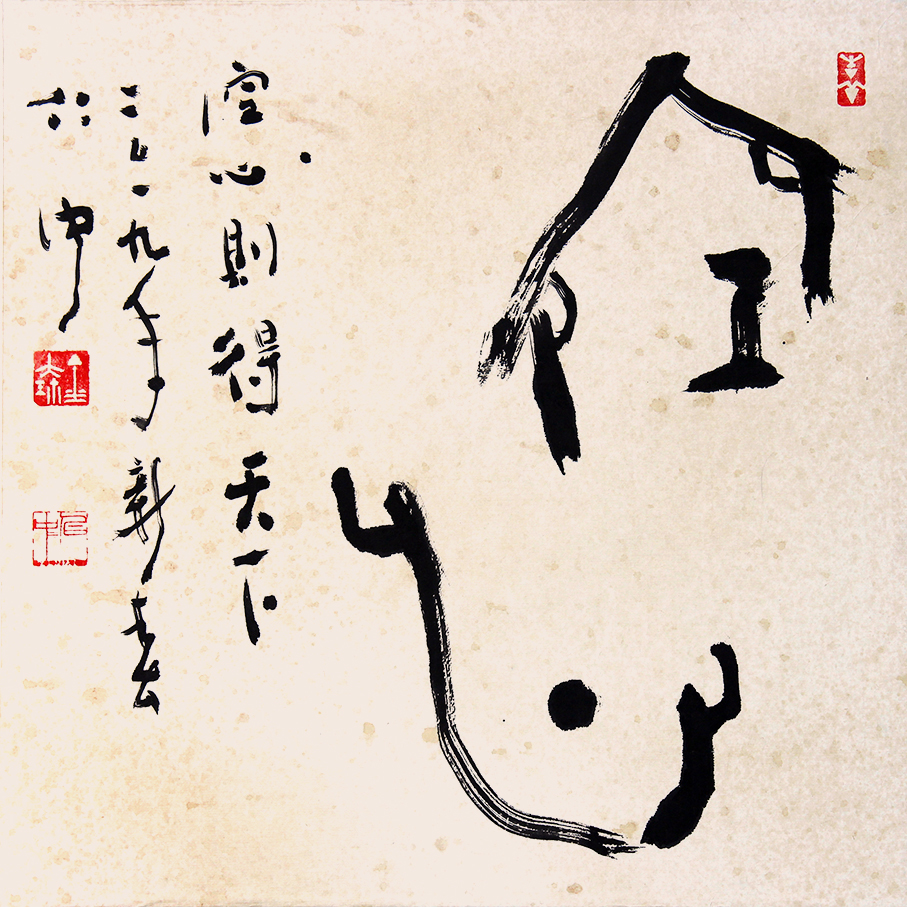 空
心
空心則得天下
二〇一九年新春